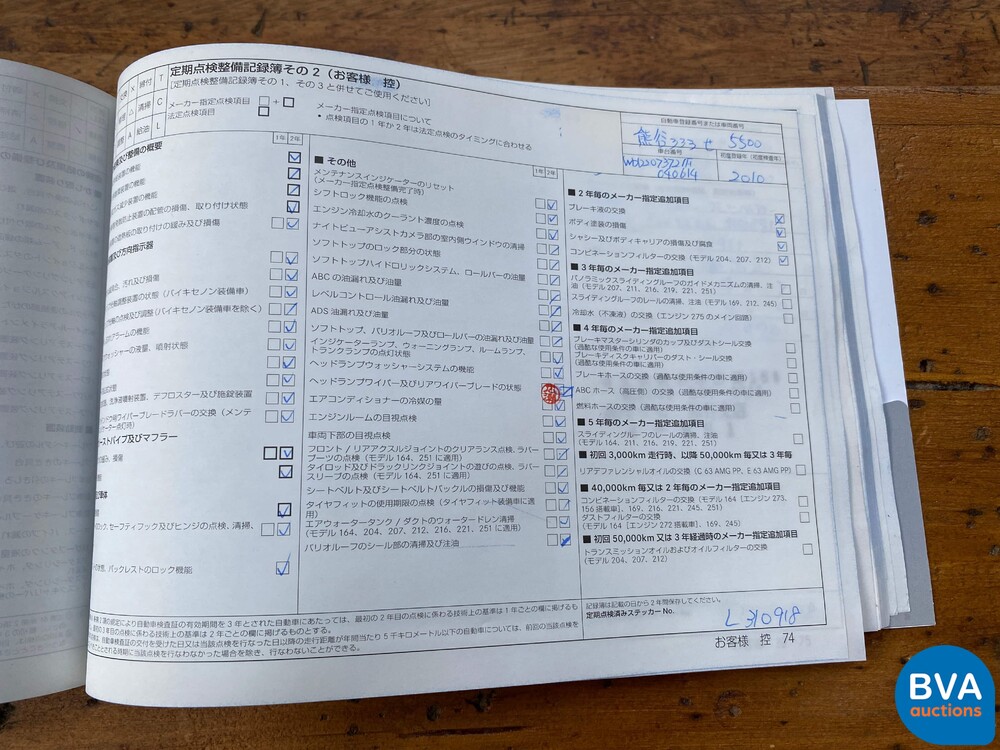 定期点検整備記録簿その2(お客様 控)
[定期点検整備記録簿その1、その3と併せてご使用ください]
締付 T
清掃 C
給油 L
メーカー指定点検項目
法定点検項目
メーカー指定点検項目について
• 点検項目の1年か2年は法定点検のタイミングに合わせる
自動車登録番号または車両番号
熊谷 333 せ 5500
車台番号
初度登録年(初度検査年)
2010
及び整備の概要
1年 2年
の機能
装置の機能
の機能
装置の配管の損傷、取り付け状態
の取り付けの緩み及び損傷
及び方向指示器
及び損傷
調整装置の状態(バイキセノン装備車)
の点検及び調整(バイキセノン装備車を除く)
アラームの機能
ウォッシャーの液量、噴射状態
洗浄液噴射装置、デフロスター及び施錠装置
ワイパーブレードラバーの交換(メンテ
ター点灯時)
ーストパイプ及びマフラー
損傷
ロック、セーフティフック及びヒンジの点検、清掃、
の状態、バックレストのロック機能
■ その他
1年 2年
メンテナンスインジケーターのリセット
(メーカー指定点検整備完了時)
シフトロック機能の点検
エンジン冷却水のクーラント濃度の点検
ナイトビューアシストカメラ部の室内側ウインドウの清掃
ソフトトップのロック部分の状態
ソフトトップハイドロリックシステム、ロールバーの油量
ABC の油漏れ及び油量
レベルコントロール油漏れ及び油量
ADS 油漏れ及び油量
ソフトトップ、バリオルーフ及びロールバーの油漏れ及び油量
インジケーターランプ、ウォーニングランプ、ルームランプ、
トランクランプの点灯状態
ヘッドランプウォッシャーシステムの機能
ヘッドランプワイパー及びリアワイパーブレードの状態
エアコンディショナーの冷媒の量
エンジンルームの目視点検
車両下部の目視点検
フロント / リアアクスルジョイントのクリアランス点検、ラバー
ブーツの点検(モデル 164、251 に適用)
タイロッド及びドラックリンクジョイントの遊びの点検、ラバー
スリーブの点検(モデル 164、251 に適用)
シートベルト及びシートベルトバックルの損傷及び機能
タイヤフィットの使用期限の点検(タイヤフィット装備車に適
用)
エアウォータータンク / ダクトのウォータードレン清掃
(モデル 164、204、207、212、216、221、251 に適用)
バリオルーフのシール部の清掃及び注油
■ 2年毎のメーカー指定追加項目
ブレーキ液の交換
ボディ塗装の損傷
シャシー及びボディキャリアの損傷及び腐食
コンビネーションフィルターの交換(モデル 204、207、212)
■ 3年毎のメーカー指定追加項目
パノラミックスライディングルーフのガイドメカニズムの清掃、注
油(モデル 207、211、216、219、221、251)
スライディングルーフのレールの清掃、注油(モデル 169、212、245)
冷却水(不凍液)の交換(エンジン 275 のメイン回路)
■ 4年毎のメーカー指定追加項目
ブレーキマスターシリンダのカップ及びダストシール交換
(過酷な使用条件の車に適用)
ブレーキディスクキャリパーのダスト・シール交換
(過酷な使用条件の車に適用)
ブレーキホースの交換(過酷な使用条件の車に適用)
ABC ホース(高圧側)の交換(過酷な使用条件の車に適用)
燃料ホースの交換(過酷な使用条件の車に適用)
■ 5年毎のメーカー指定追加項目
スライディングルーフのレールの清掃、注油
(モデル 164、211、216、219、221、251)
■ 初回 3,000km 走行時、以降 50,000km 毎又は 3年毎
リアデファレンシャルオイルの交換(C 63 AMG PP; E 63 AMG PP)
■ 40,000km 毎又は 2年毎のメーカー指定追加項目
コンビネーションフィルターの交換(モデル 164 [エンジン 273、
156 搭載車]、169、216、221、245、251)
ダストフィルターの交換
(モデル 164 [エンジン 272 搭載車]、169、245)
■ 初回 50,000km 又は 3年経過時のメーカー指定追加項目
トランスミッションオイルおよびオイルフィルターの交換
(モデル 204、212)
の規定により自動車検査証の有効期間を3年とされた自動車にあたっては、最初の2年目の点検に係わる技術上の基準は1年ごとの欄に掲げるもの
3年目の点検に係わる技術上の基準は2年ごとの欄に掲げるものとする。
自動車検査証の交付を受けた日又は当該点検を行なった日以降の走行距離が年間当たり5千キロメートル以下の自動車については、前回の当該点検を
行なうこととされる時期に当該点検を行なわなかった場合を除き、行なわないことができる。
記録簿は記載の日から2年間保存してください。
定期点検済みステッカー No.
L 310918
お客様 控 74
BVA
auctions